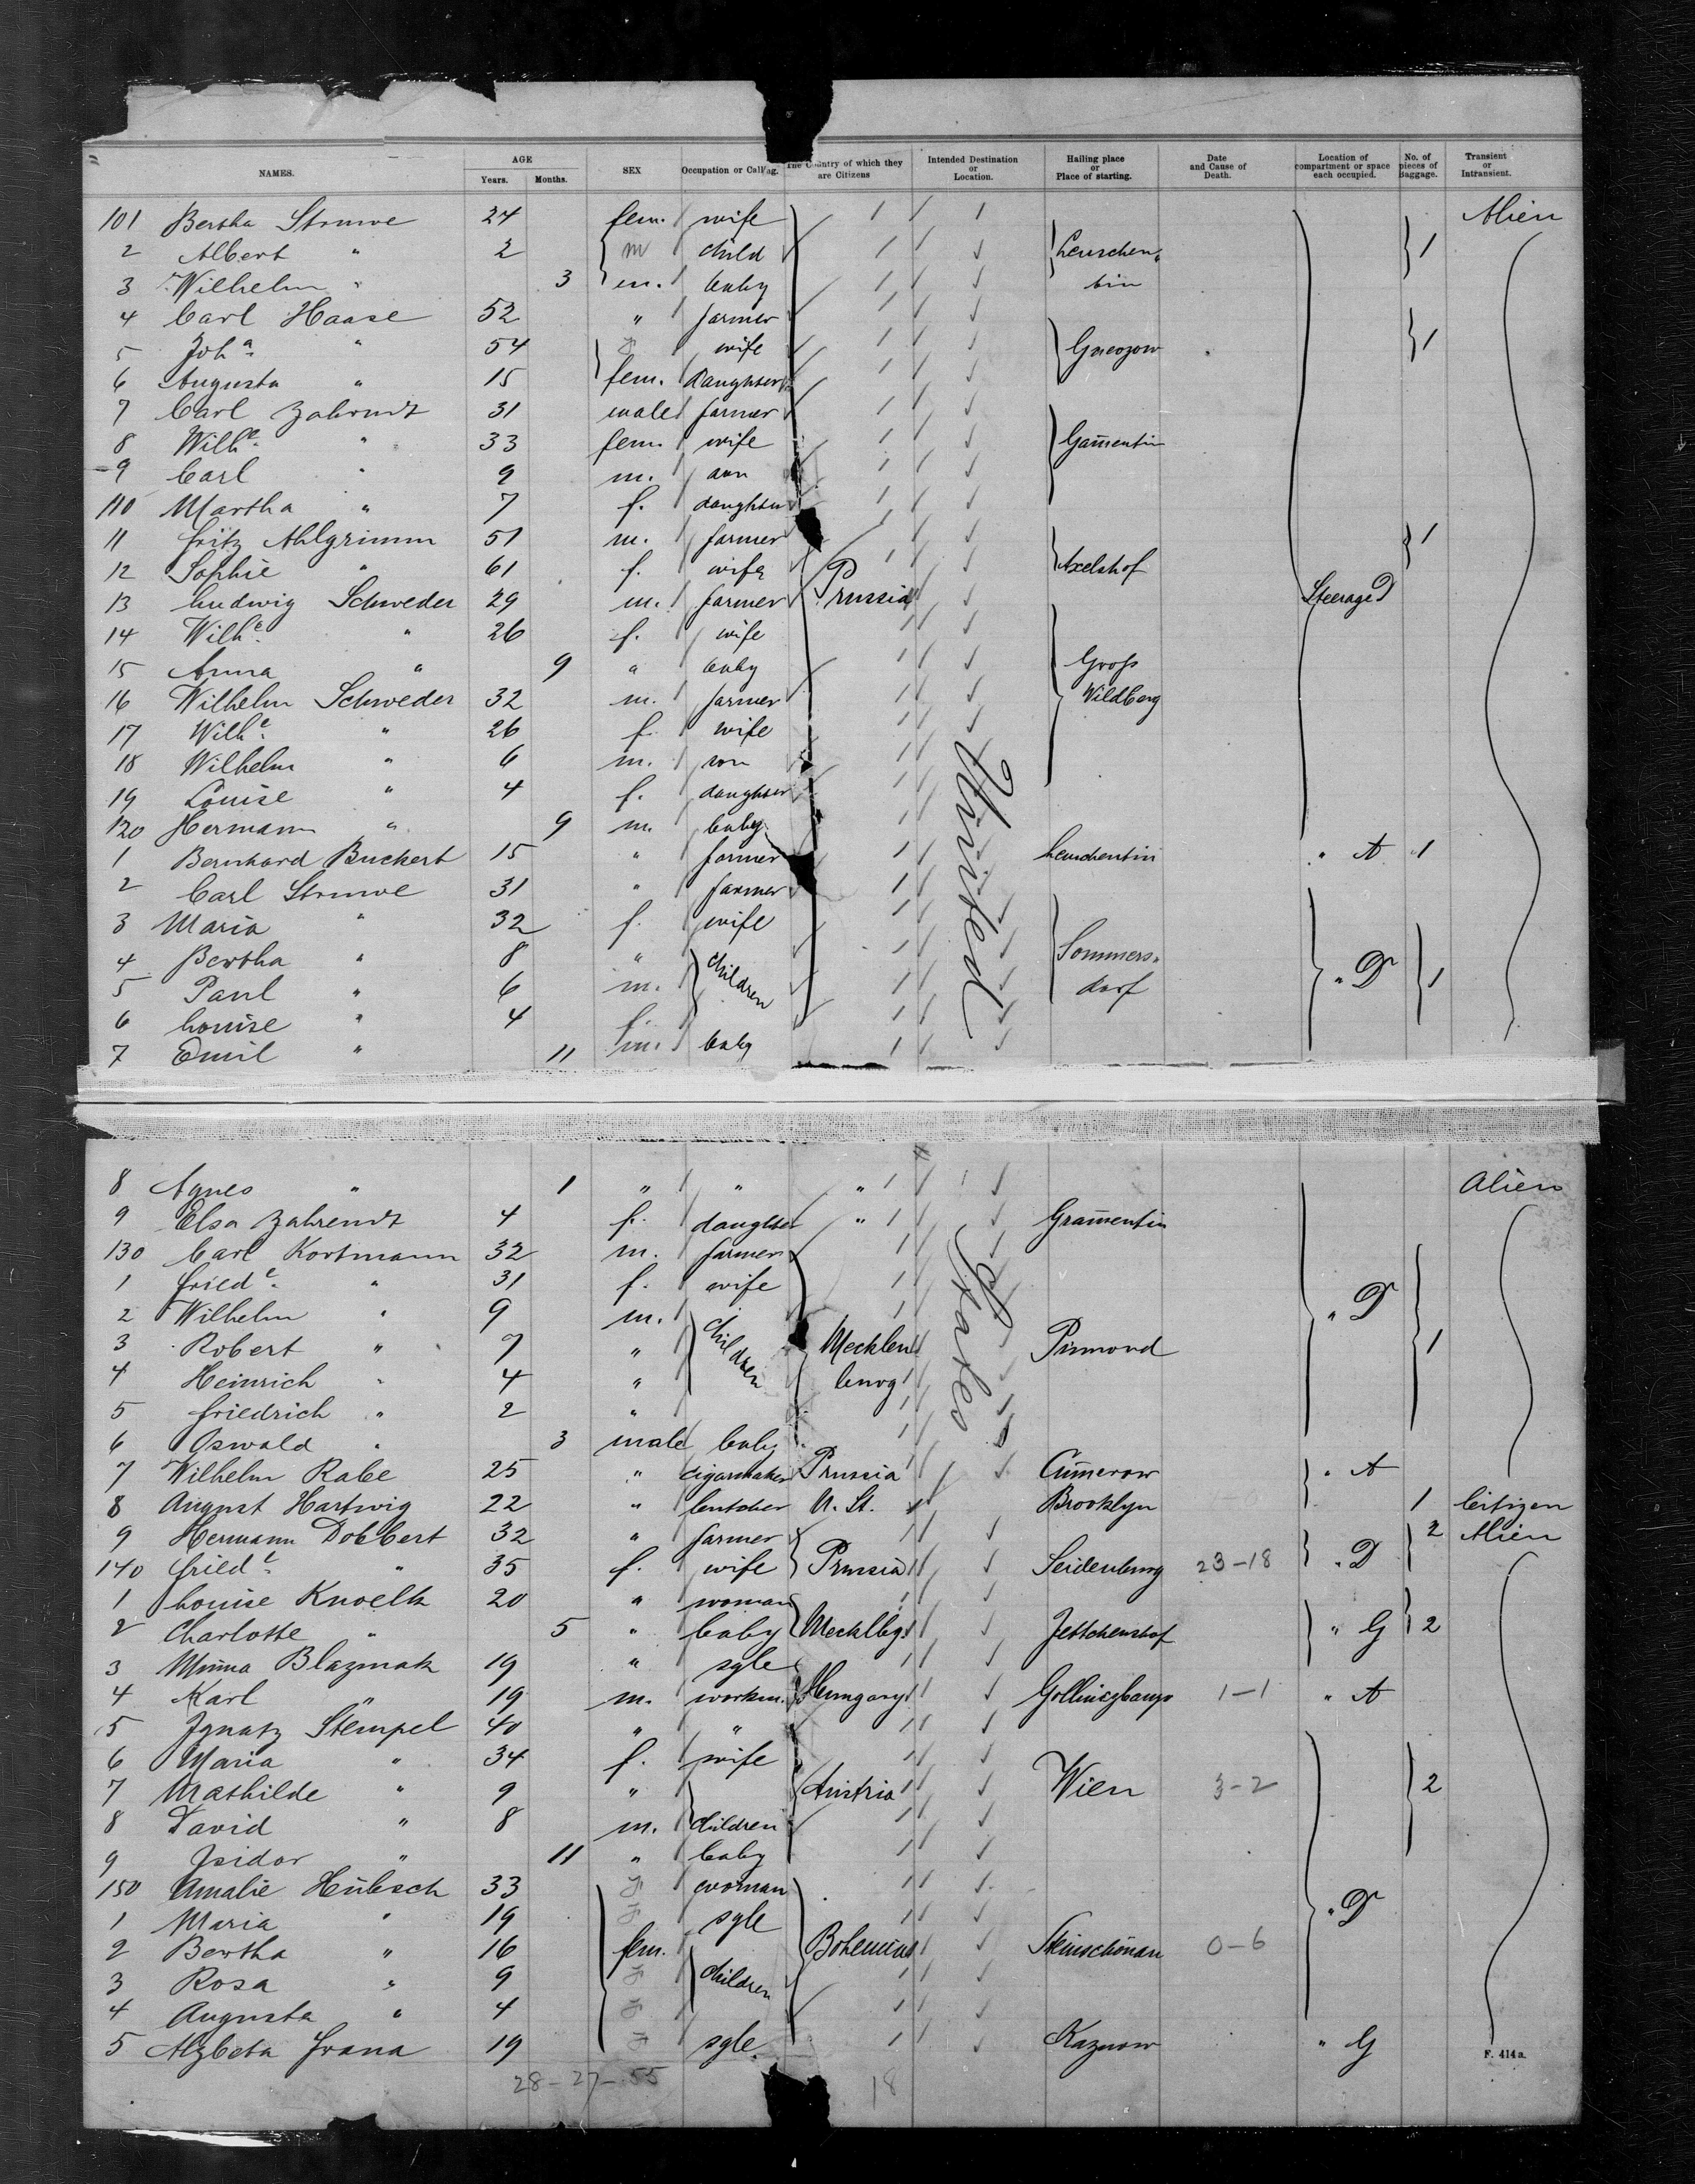 NAMES. AGE Years. Months. SEX Occupation or Calling. The Country of which they are Citizens Intended Destination or Location. Hailing place or Place of starting. Date and Cause of Death. Location of compartment or space each occupied. No. of pieces of Baggage. Transient or Intransient.
101 Bertha Struwe 24 fem. wife Alien
2 Albert " 2 m child Leuschen- 1
3 Wilhelm " 3 m. baby tin
4 Carl Haase 52 " farmer
5 Joh.a " 54 F wife 1
6 Augusta " 15 fem. Daughter
7 Carl Zahrndt 31 male farmer
8 Wilh.e " 33 fem. wife Gam̄entin
9 Carl " 9 m. son
110 Martha " 7 f. daughter
11 Fritz Ahlgrimm 51 m. farmer 1
12 Sophie " 61 f. wife Axelshof
13 Ludwig Schweder 29 m. farmer Prussia Steerage D
14 Wilh.e " 26 f. wife
15 Anna " 9 " baby Groß
16 Wilhelm Schweder 32 m. farmer Wildberg
17 Wilh.e " 26 f. wife
18 Wilhelm " 6 m. son
19 Louise " 4 f. daughter
120 Hermann " 9 m. baby
1 Bernhard Buckert 15 " farmer Leuschentin " A 1
2 Carl Struwe 31 " farmer
3 Maria " 32 f. wife
4 Bertha " 8 " children Sommers-
5 Paul " 6 m. dorf " D 1
6 Louise " 4 f.
7 Emil " 11 m. baby
United
8 Agnes " 1 " " " Alien
9 Elsa Zahrendt 4 f. daughter " Gram̄entin
130 Carl Kortmann 32 m. farmer
1 Fried.e " 31 f. wife
2 Wilhelm " 9 m. children " D
3 Robert " 7 " Mecklen 1
4 Heinrich " 4 " burg
5 Friedrich " 2 "
6 Oswald " 3 male baby
States
7 Wilhelm Rabe 25 " cigarmaker Prussia Cum̄erow " A
8 August Hartwig 22 " butcher U. St. Brooklyn 1 Citizen
9 Hermann Dobbert 32 " farmer 2 Alien
140 Fried.e " 35 f. wife Prussia Seidenburg 23-18 " D
1 Louise Knoelk 20 " woman
2 Charlotte " 5 " baby Mecklbg. Jettchenshof " G 2
3 Minna Blazmak 19 " sgle
4 Karl " 19 m. workm. Hungary 1-1 " A
5 Ignatz Stempel 40 " "
6 Maria " 34 f. wife
7 Mathilde " 9 " Austria Wien 3-2 2
8 David " 8 m. children
9 Isidor " 11 " baby
150 Amalie Hübsch 33 F woman " D
1 Maria " 19 F sgle
2 Bertha " 16 fem. Bohemia Steinschönau 0-6
3 Rosa " 9 F children
4 Augusta " 4 F
5 Alzbeta Frana 19 F sgle. Kaznow " G
F. 414a.
28-27-55 18